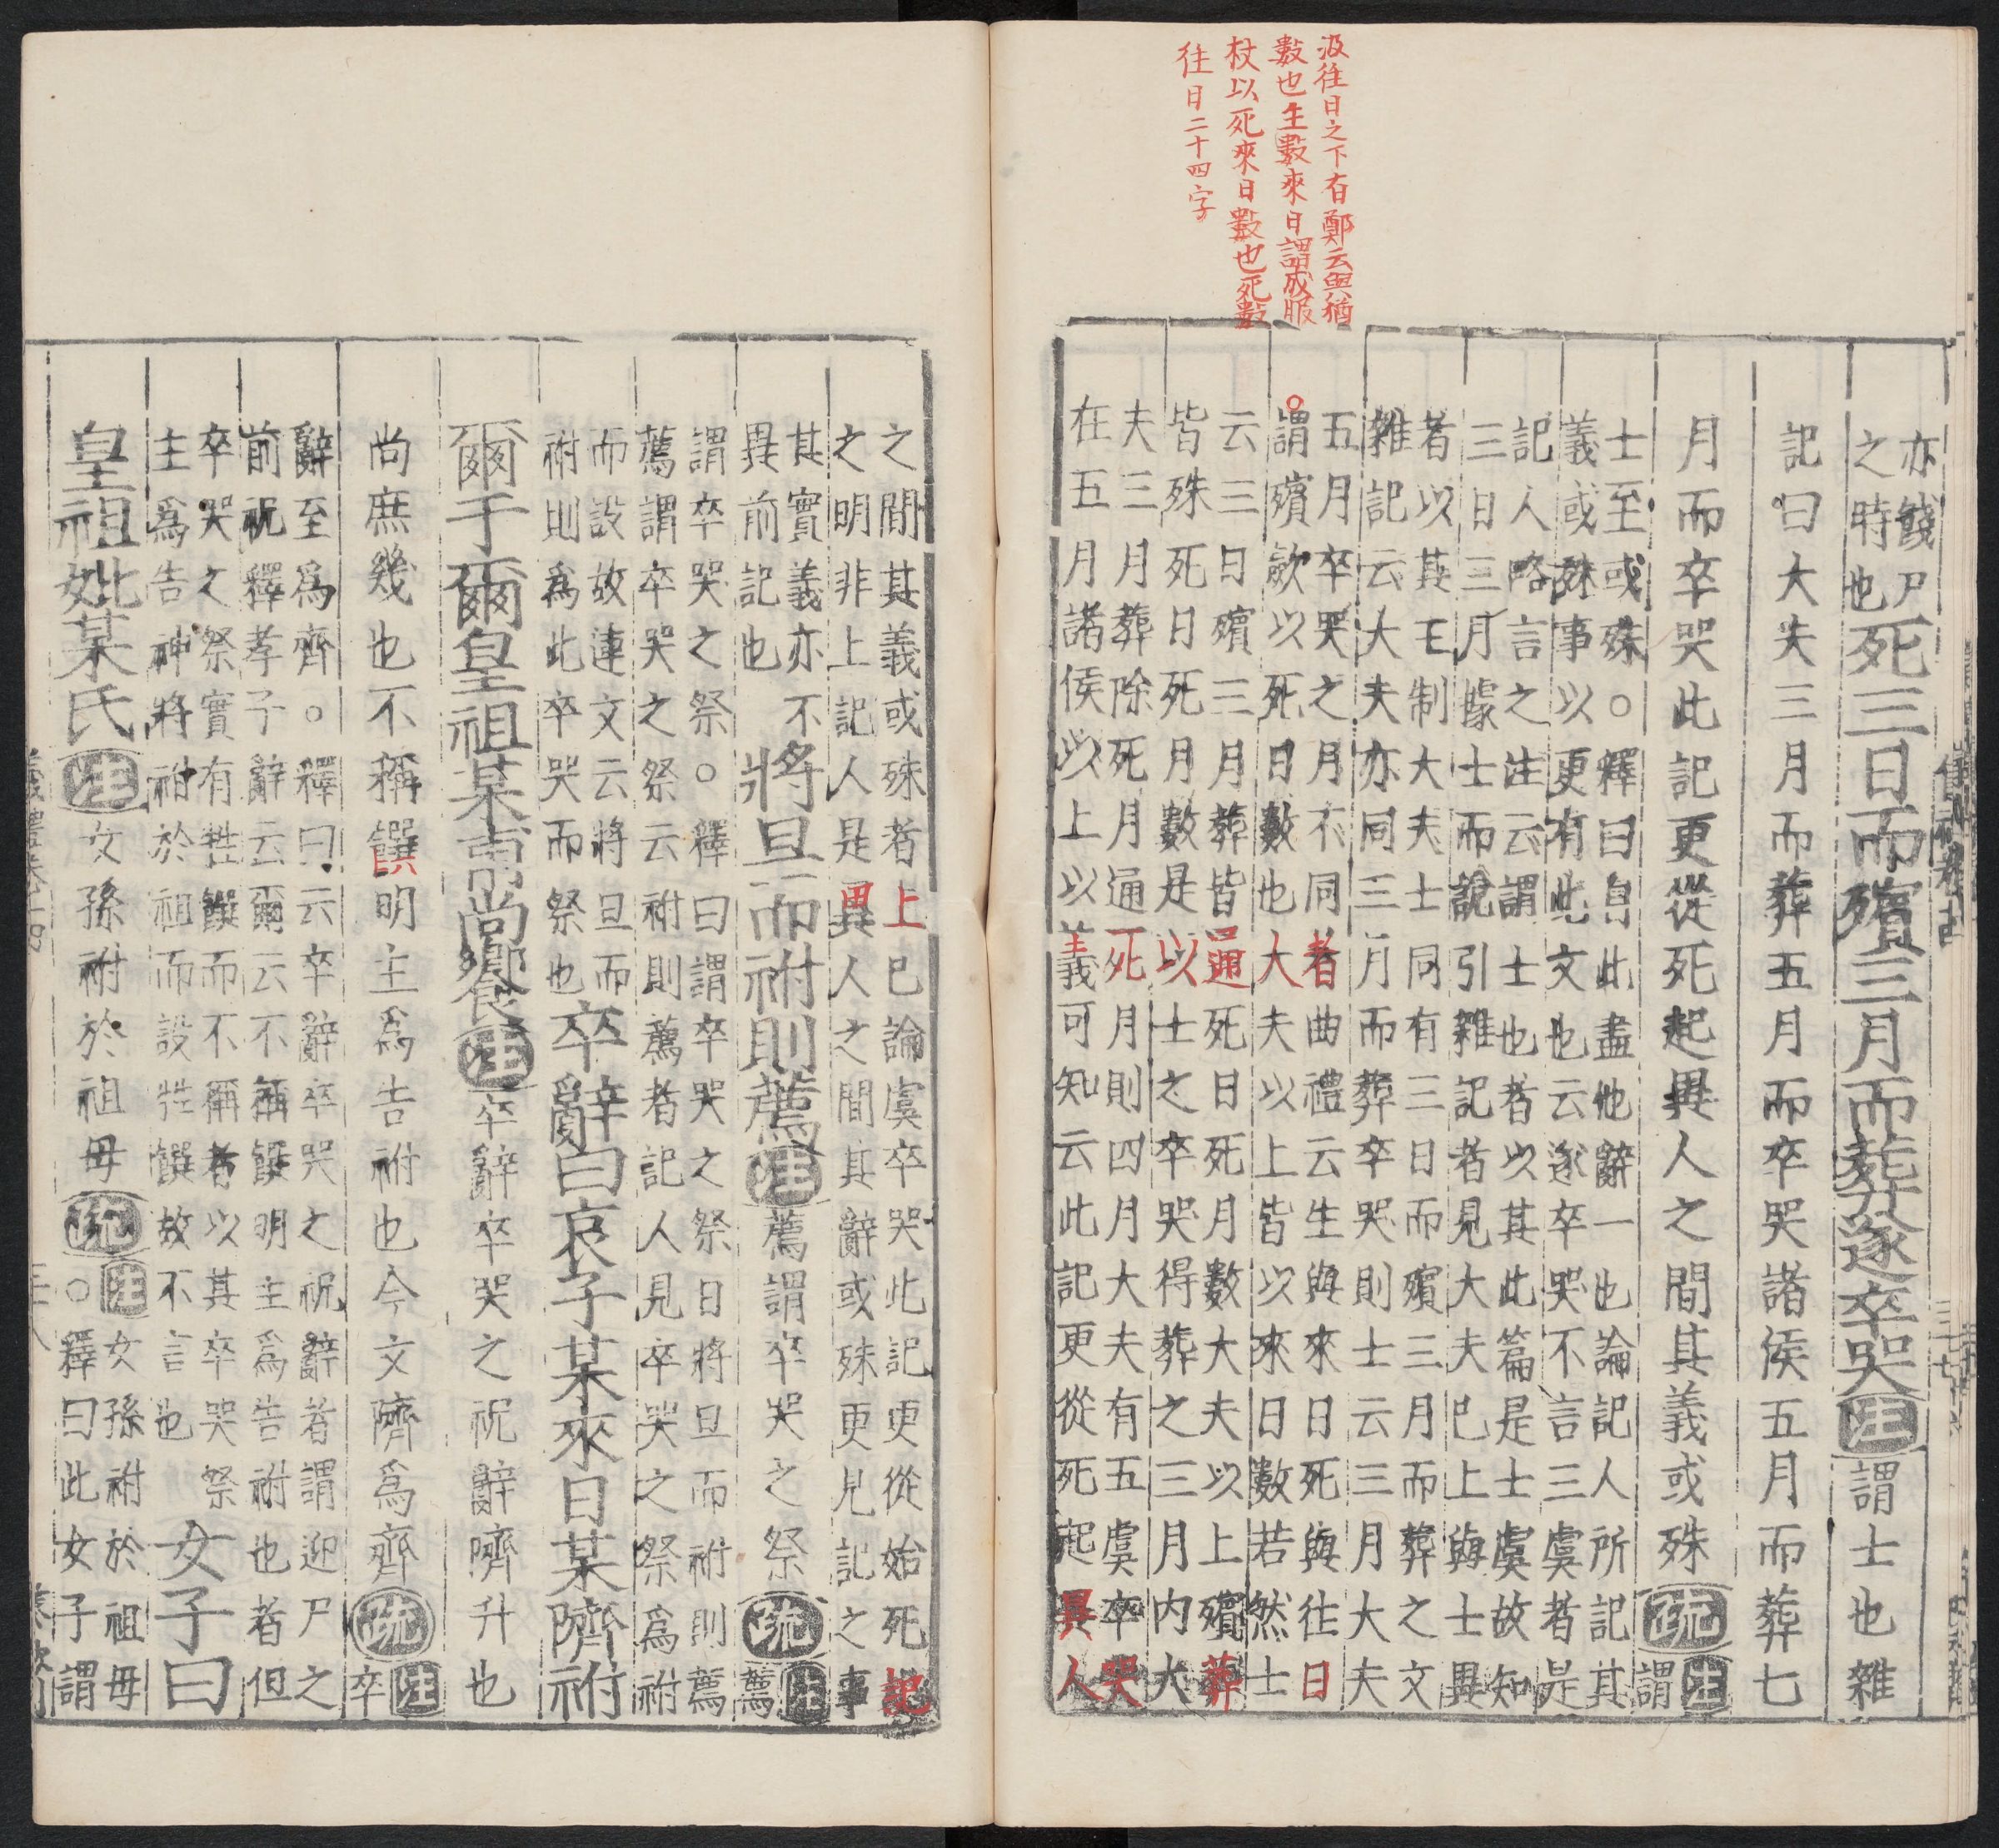 汲往日之下有鄭云與猶
數也生數來日謂成服
杖以死來日數也死數
往日二十四字
亦餞尸
之時也
死三日而殯三月而葬遂卒哭
注
謂士也雜
記曰大夫三月而葬五月而卒哭諸侯五月而葬七
月而卒哭此記更從死起異人之間其義或殊
疏
注
謂
士至或殊○釋曰自此盡他辭一也論記人所記其
義或殊事以更有此文也云遂卒哭不言三虞者是
記人略言之注云謂士也者以其此篇是士虞故知
三日三月據士而說引雜記者見大夫已上與士異
者以其王制大夫士同有三日而殯三月而葬之文
雜記云大夫亦同三月而葬卒哭則士云三月大夫
五月卒哭之月不同者曲禮云生與來日死與往日
○謂殯歛以死日數也大夫以上皆以來日數若然士
云三日殯三月葬皆通死日死月數大夫以上殯葬
皆殊死日死月數是以士之卒哭得葬之三月內大
夫三月葬除死月通死月則四月大夫有五虞卒哭
在五月諸侯以上以義可知云此記更從死起異人
之間其義或殊者上已論虞卒哭此記更從始死記
之明非上記人是異人之間其辭或殊更見記之事
其實義亦不
異前記也
將旦而祔則薦
注
薦謂卒哭之祭
疏
注
薦
謂卒哭之祭○釋曰謂卒哭之祭日將旦而祔則薦
薦謂卒哭之祭云祔則薦者記人見卒哭之祭為祔
而設故連文云將旦而
祔則為此卒哭而祭也
卒辭曰哀子某來日某隮祔
爾于爾皇祖某甫尚饗
注
卒辭卒哭之祝辭隮升也
尚庶幾也不稱饌明主為告祔也今文隮為齊
疏
注
卒
辭至為齊○釋曰云卒辭卒哭之祝辭者謂迎尸之
前祝釋孝子辭云爾云不稱饌明主為告祔也者但
卒哭之祭實有牲饌而不稱者以其卒哭祭
主為告神將祔於祖而設牲饌故不言也
女子曰
皇祖妣某氏
注
女孫祔於祖母
疏
注
女孫祔於祖母
○釋曰此女子謂